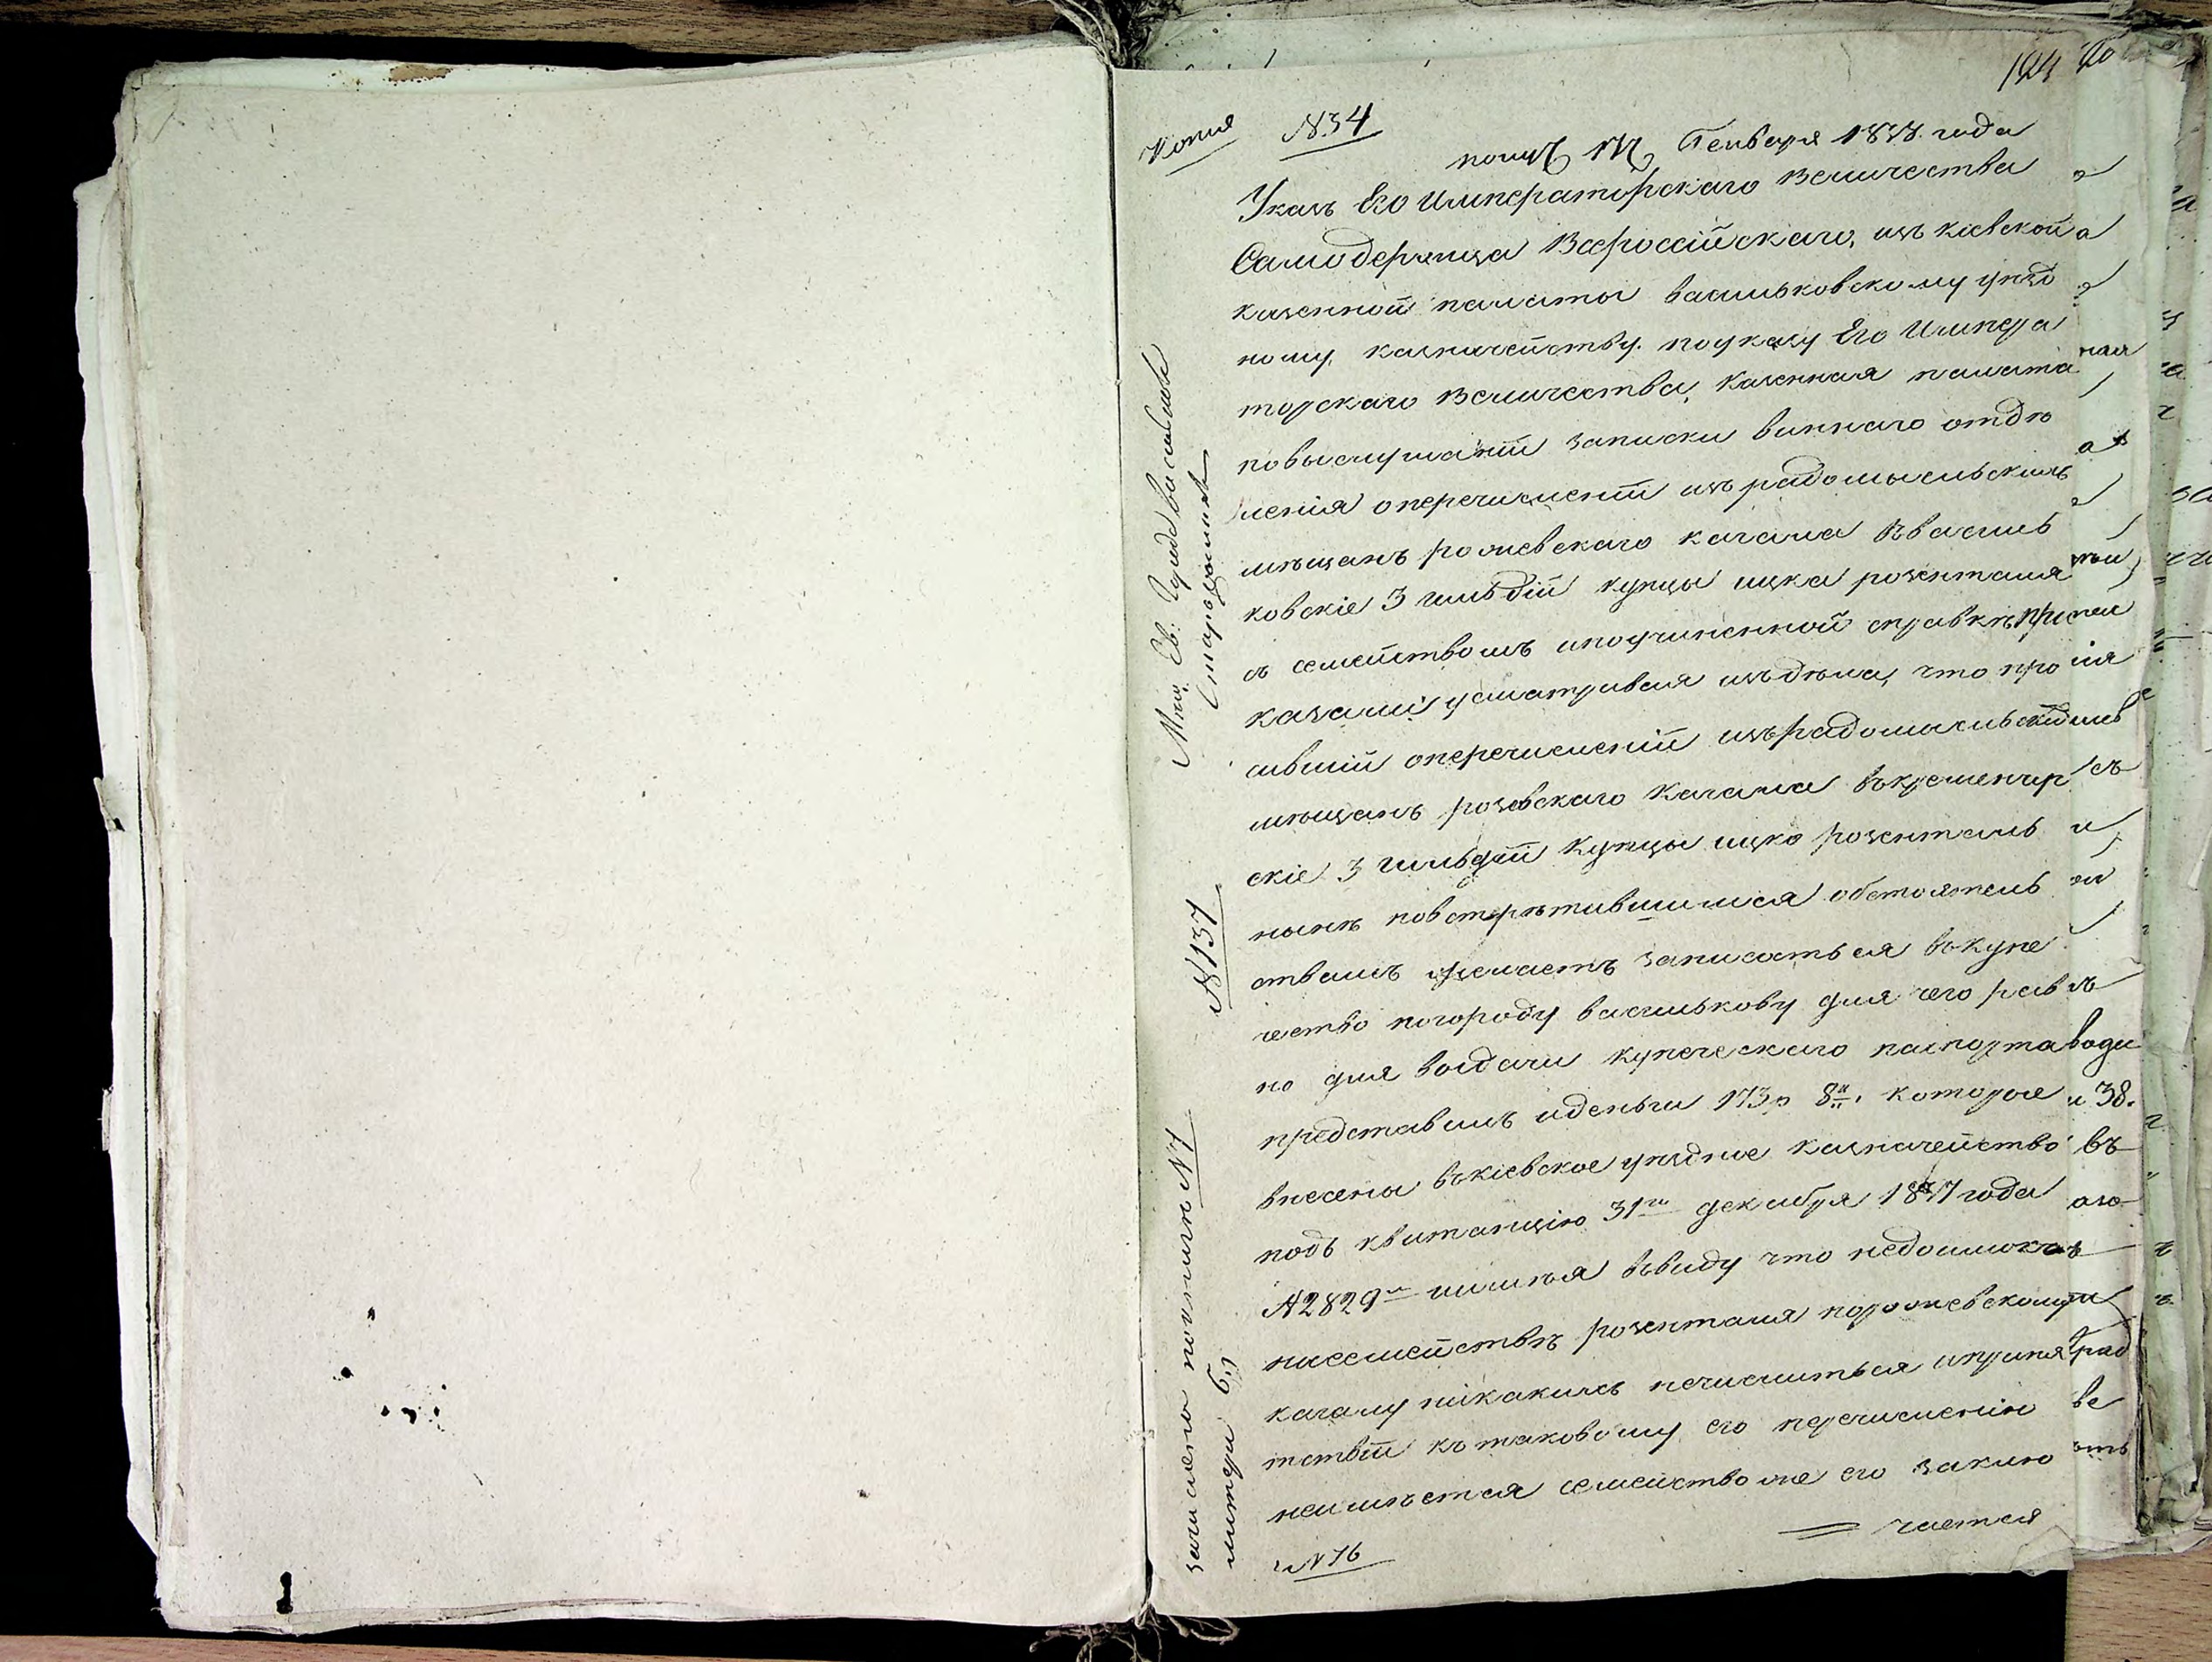 Копия
N34
Генваря 1838. года
Указъ Его Императорскаго Величества
Самодержца Всероссійскаго, изъ Кіевской
казенной палаты васильковскому уѣзд
ному, казначейству. по указу Его Импера
торскаго Величества, казенная палата
по выслушаніи записки виннаго отдѣ
ленія о перечисленіи изъ радомысльскихъ
мѣщанъ рожевскаго кагала въ василь
ковскіе 3 гильдіи купцы ицка розенталя
съ семействомъ и по учиненной справкѣ при
казали усматривая изъ дѣла, что про
сившій о перечисленіи изъ радомысльскихъ
мѣщанъ рожевскаго кагала въ кременчуг
скіе 3 гильдіи купцы ицко розенталь
нынѣ по встрѣтившимся обстоятель
ствамъ желаетъ записаться въ купе
чество по городу василькову для чего рав
но для выдачи купеческаго паспорта
представилъ и деньги 173 р 8 к. которые
внесены въ кіевское уѣздное казначейство
подъ квитанцію 31го декабря 1837 года
N2829 и имѣя въ виду что недоимокъ
на семействѣ розенталя по рожевскому
кагалу никакихъ нечислиться и препя
тствій къ таковому его перечисленію
неимѣется семейство же его заклю
чается
N76
зачислено по книги N7
литера б.
N137
Мѣщ. Ев: